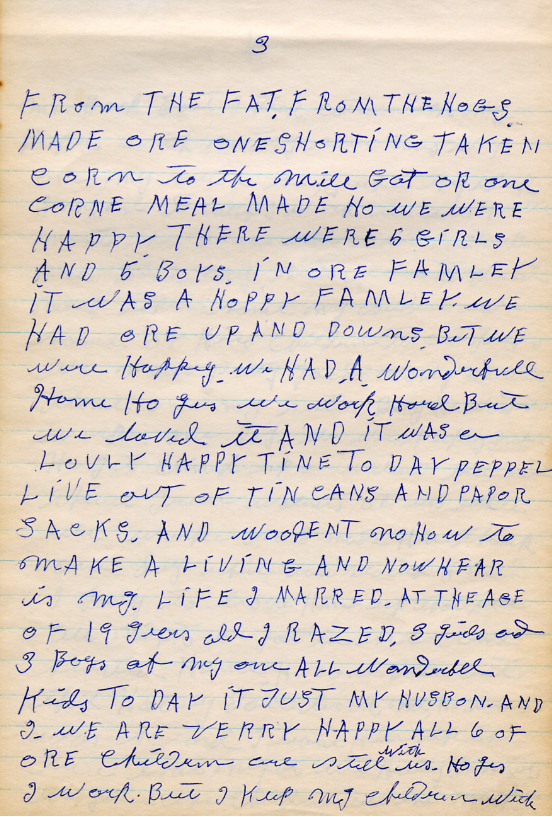 3
FROM THE FAT, FROM THE HOGS.
MADE ORE ONE SHORTING TAKEN
CORN to the mill Got OR one
CORNE MEAL MADE HO WE WERE
HAPPY. THERE WERE 5 GIRLS
AND 5 BOYS. IN ORE FAMLEY
IT WAS A HOPPY FAMLEY. WE
HAD ORE UP AND DOWNS. BUT WE
were Happy. We HAD A Wonderfull
Home Ho yes we work Hard But
we loved it AND IT WAS a
LOULY HAPPY TINE TO DAY PEPPEL
LIVE OUT OF TIN CANS AND PAPOR
SACKS. AND WOOFENT no HOW to
MAKE A LIVING AND NOW HEAR
is my LIFE I MARRED. AT THE AGE
OF 19 years old I RAZED, 3 girls ad
3 Boys of my one ALL Wonderbel
Kids TO DAY IT JUST MY HUSBON. AND
I. WE ARE VERRY HAPPY ALL 6 OF
ORE Children are still with us. Ho yes
I work. But I Keep my children with